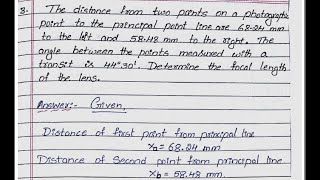 3. The distance from two points on a photographic
point to the principal point line are 68.24 mm
to the left and 58.48 mm to the right. The
angle between the points measured with a
transit is 44°30'. Determine the focal length
of the lens.
Answer:- Given,
Distance of first point from principal line
xa = 68.24 mm
Distance of Second point from principal line
xb = 58.48 mm.